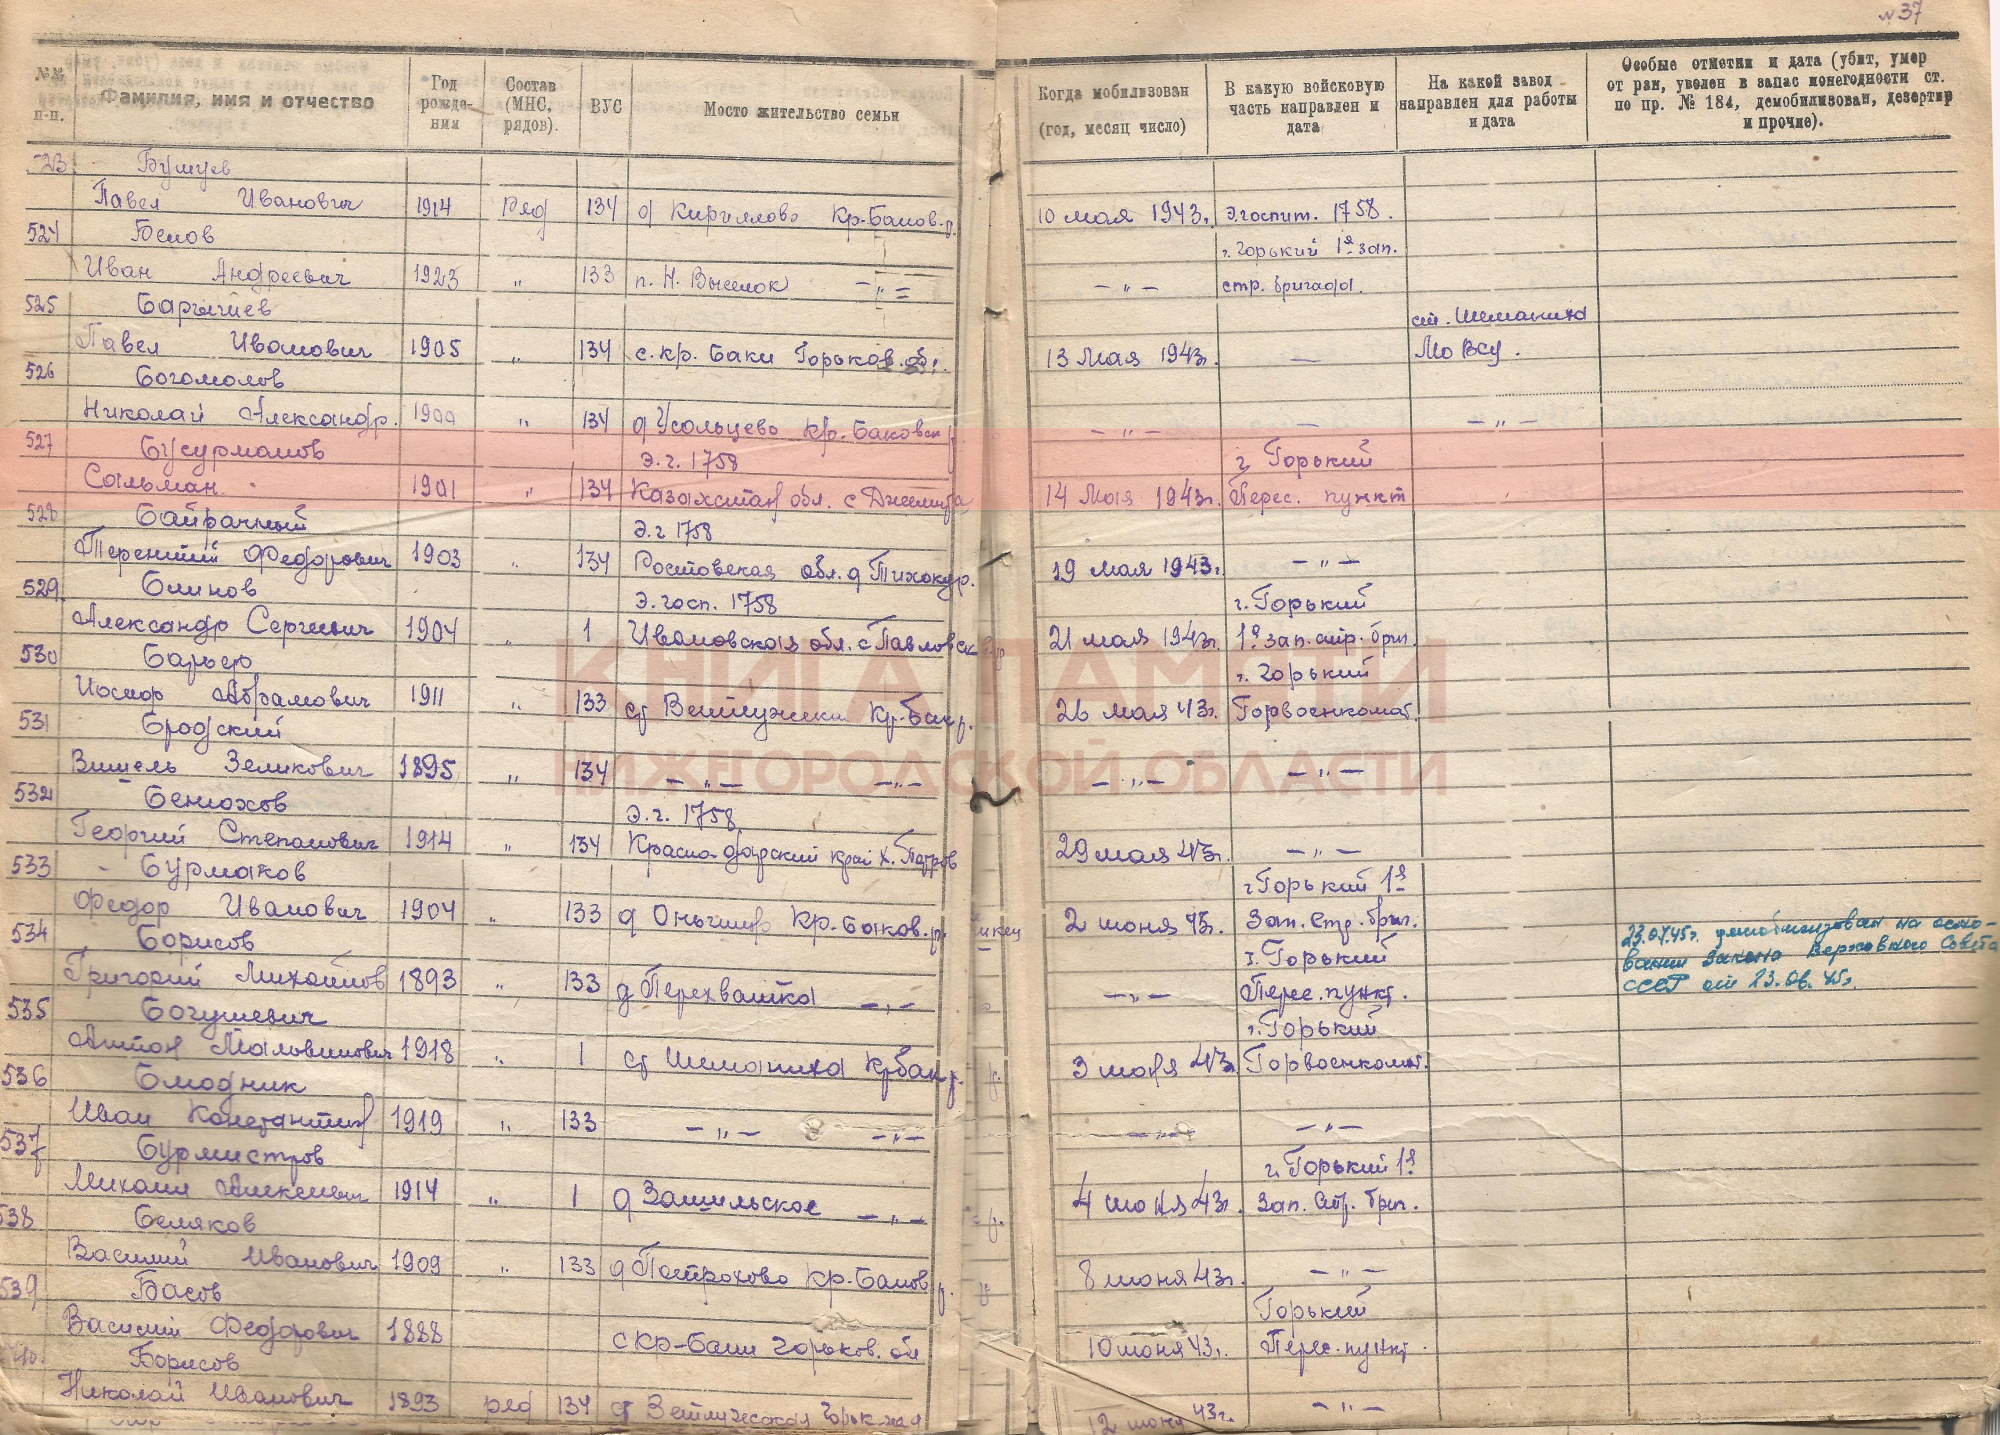 № 37
№№ п-п.
Фамилия, имя и отчество
Год рожде-ния
Состав (МНС, рядов).
ВУС
Место жительство семьи
Когда мобилизован (год, месяц число)
В какую войсковую часть направлен и дата
На какой завод направлен для работы и дата
Особые отметки и дата (убит, умер от ран, уволен в запас понегодности ст. по пр. № 184, демобилизован, дезертир и прочие).
523 Бушуев
Павел Иванович 1914 ряд 134 д Кириллово Кр-Баков. р. 10 мая 1943г. Э.госпит. 1758.
524 Белов г. Горький 1я зап.
Иван Андреевич 1923 " 133 п. Н. Выселок -"- -"- стр. бригада.
525 ст. Шеманиха
Павел Иванович 1905 " 134 с. Кр. Баки Горьков. об. 13 мая 1943г. — МоВсу.
526 Богомолов
Николай Александр. 1900 " 134 д Усольцево Кр. Баковск р. -"- — -"-
527 Бусурманов Э. г. 1758 г. Горький
Сальман 1901 " 134 Казахстан обл. с 14 мая 1943г. Перес. пункт
528 Байрачный Э. г. 1758
Терентий Федорович 1903 " 134 Ростовская обл. д 19 мая 1943г. -"-
529. Блинов Э. госп. 1758 г. Горький
Александр Сергеевич 1904 " 1 Ивановская обл. с Павловск 21 мая 1943г. 1я зап. стр. бриг.
530 г. Горький
Иосиф Абрамович 1911 " 133 ст Ветлужская Кр-Бак р. 26 мая 43г. Горвоенкомат.
531 Бродский
Зеликович 1895 " 134 -"- -"- -"- -"-
532 Бенюхов Э. г. 1758
Георгий Степанович 1914 " 134 Краснодарский край х. 29 мая 43г. -"-
533 Бурмаков г Горький 1я
Федор Иванович 1904 " 133 д Кр. Баков. р. 2 июня 43. Зап. Стр. бриг.
534 Борисов г. Горький
Григорий Михайлов 1893 " 133 д Перехватка -"- -"- Перес. пункт.
23.07.45г. демобилизован на осно-
вании закона Верховного Совета
СССР от 23.06.45г.
535 Богушевич г. Горький
Антон 1918 " 1 ст Шеманиха Кр Бак р. 3 43 Горвоенкомат.
536 Блюдник
Иван Константин 1919 " 133 -"- -"- -"- -"-
537 Бурмистров г. Горький 1я
Михаил Алексеевич 1914 " 1 д Зашильское -"- 4 июня 43г. Зап. стр. бриг.
538 Беляков
Василий Иванович 1909 " 133 д Кр. Баков р. 8 июня 43г. -"-
539 Басов Горький
Василий Федорович 1888 с Кр-Баки Горьков. об 10 июня 43г. Перес. пункт.
Борисов
Николай Иванович 1893 ряд 134 12 июня 43г. -"-
КНИГА ПАМЯТИ
НИЖЕГОРОДСКОЙ ОБЛАСТИ